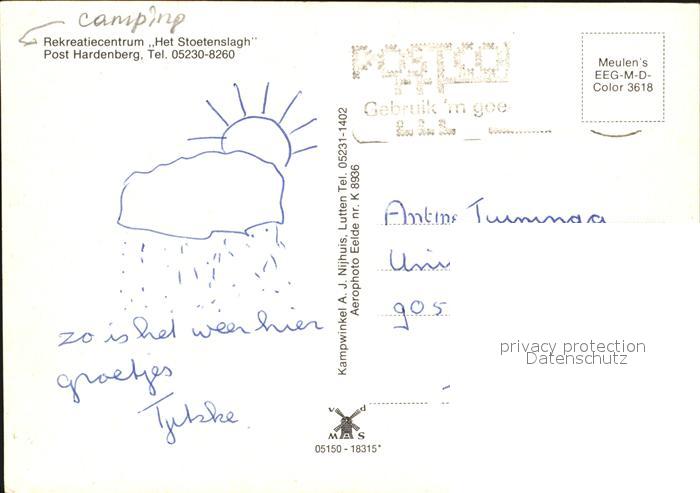 camping
Rekreatiecentrum „Het Stoetenslagh"
Post Hardenberg, Tel. 05230-8260
zo is het weer hier
groetjes
Tjitske
Kampwinkel A. J. Nijhuis, Lutten Tel. 05231-1402
Aerophoto Eelde nr. K 8936
POSTCO
Gebruik 'm goe
Meulen's
EEG-M-D-
Color 3618
Uni
905
privacy protection
Datenschutz
v d
MAS
05150 - 18315*